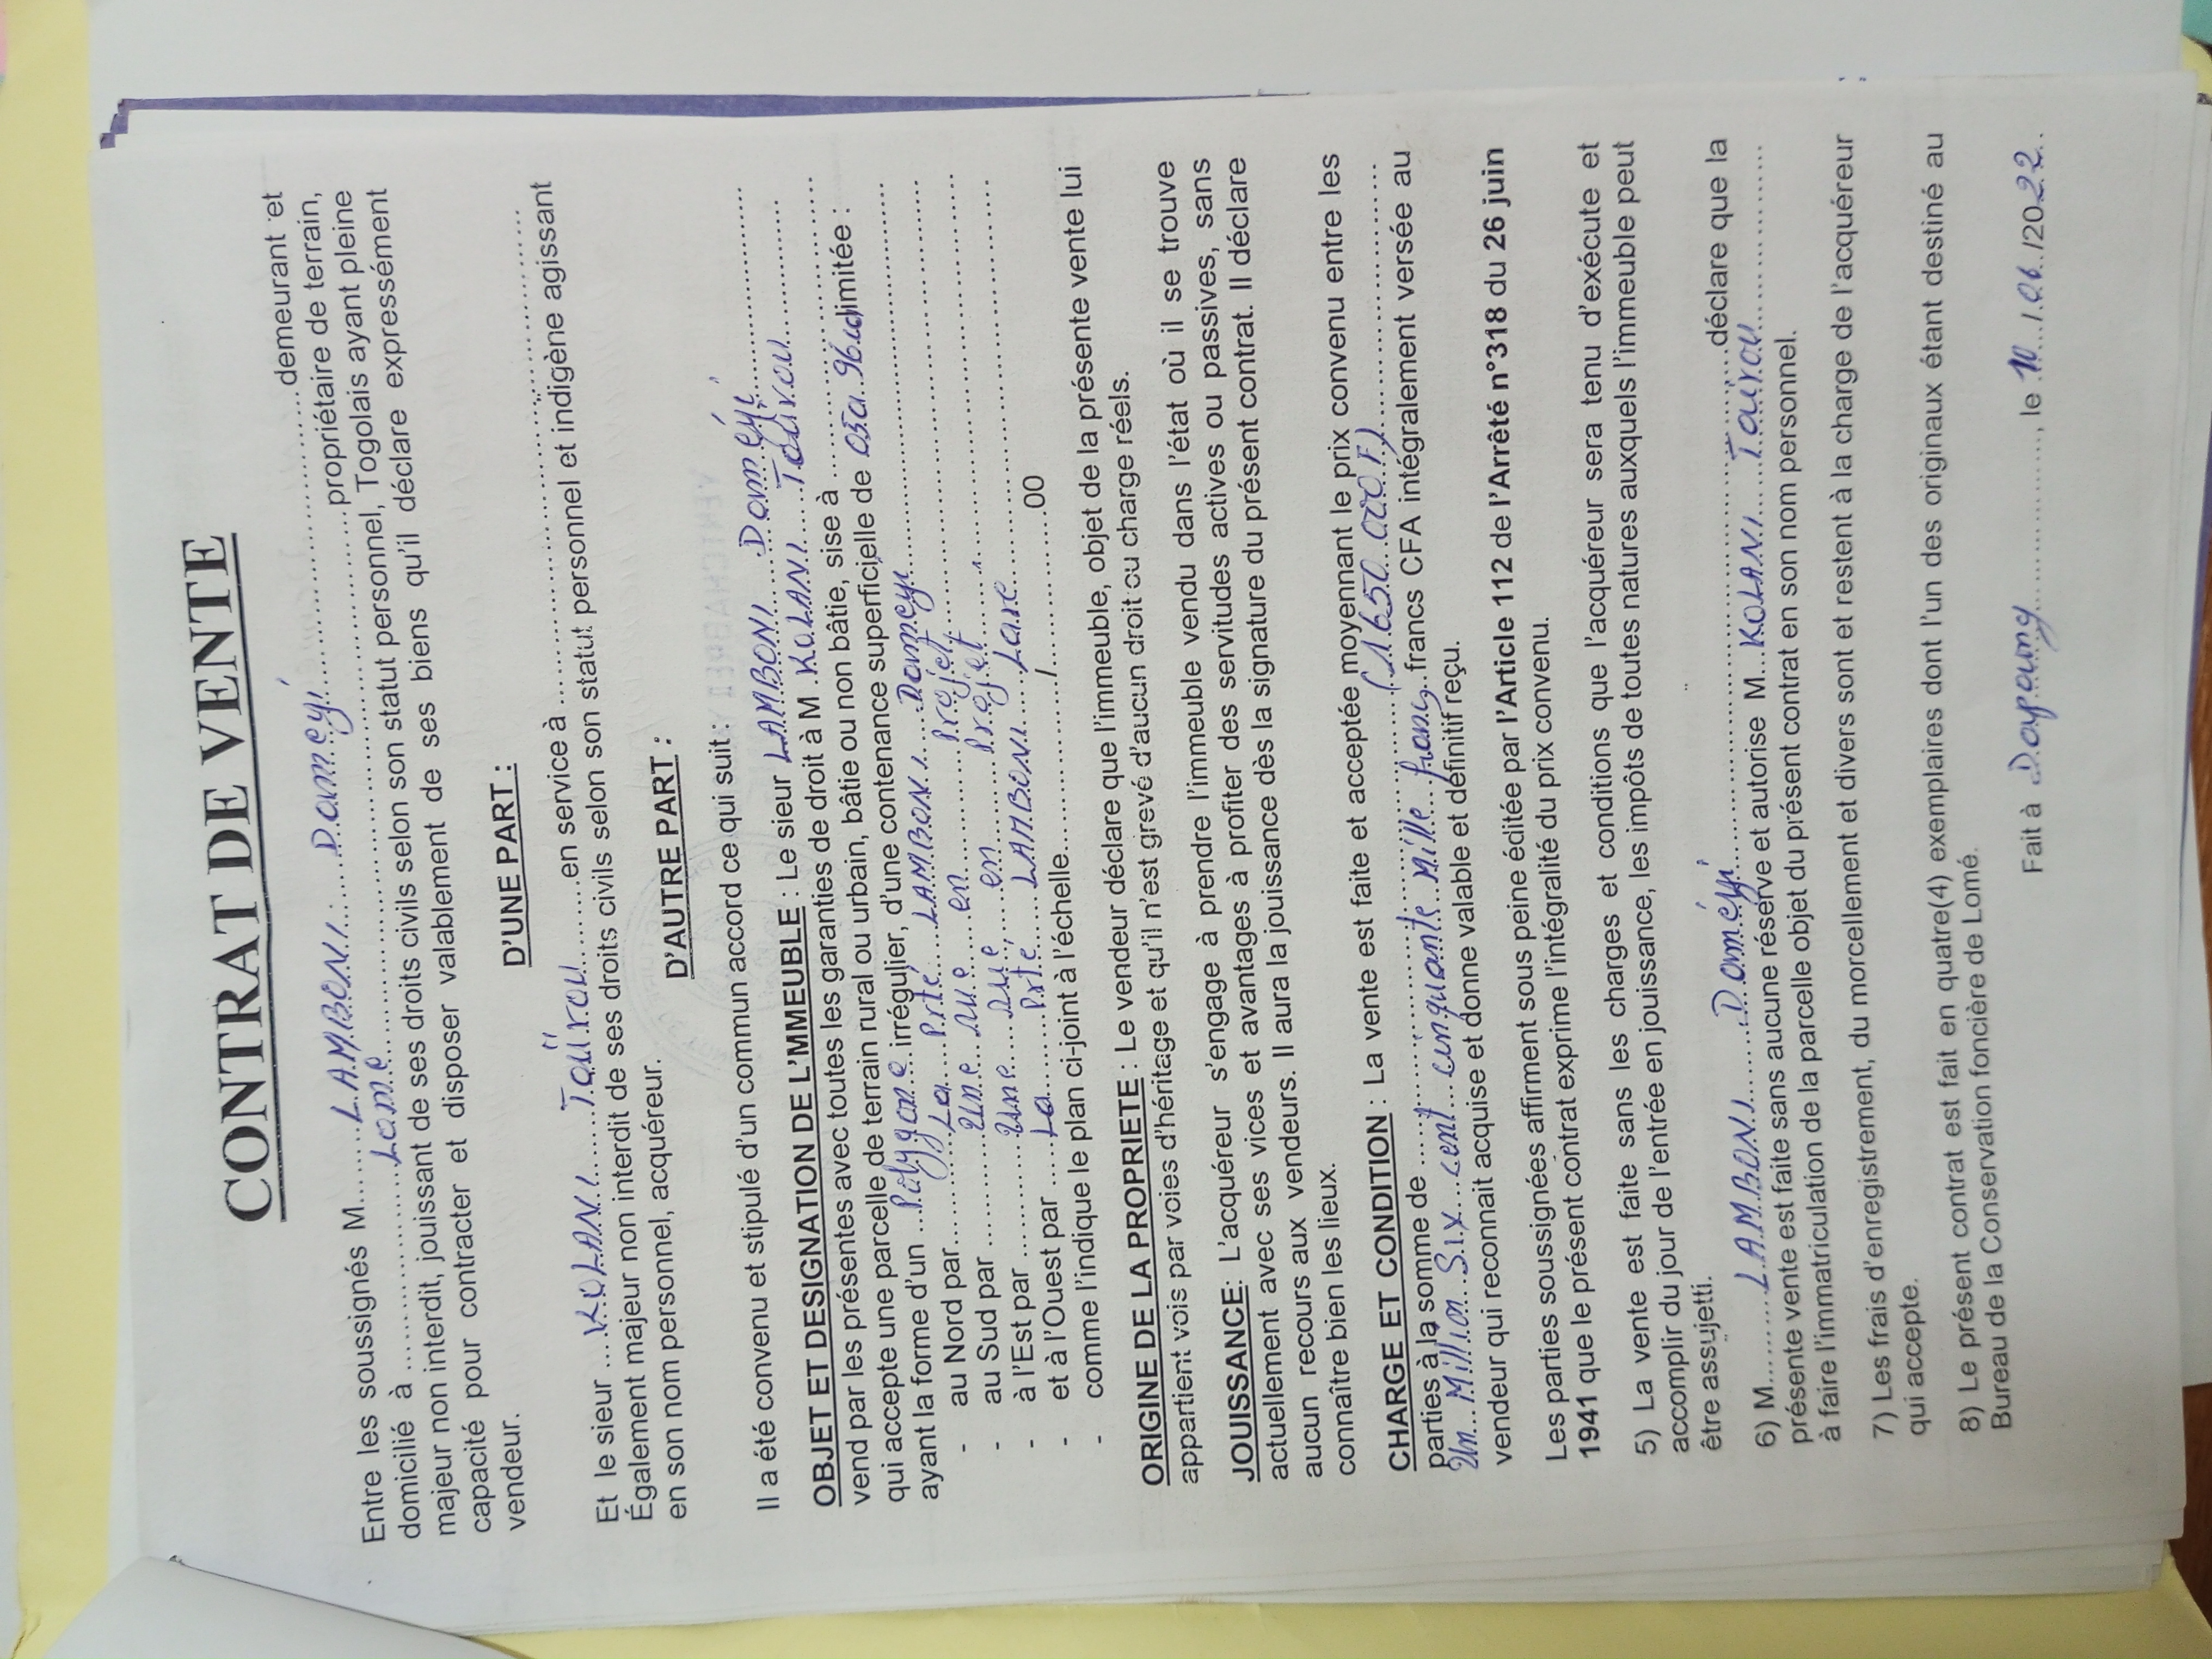 CONTRAT DE VENTE
Entre les soussignés M........LAMBONI......Daméyi.......................demeurant et
domicilié à ....................Lomé....................................................propriétaire de terrain,
majeur non interdit, jouissant de ses droits civils selon son statut personnel, Togolais ayant pleine
capacité pour contracter et disposer valablement de ses biens qu'il déclare expressément
vendeur.
D'UNE PART :
Et le sieur ....KOLANI......Taïrou........en service à ............................................................
Également majeur non interdit de ses droits civils selon son statut personnel et indigène agissant
en son nom personnel, acquéreur.
D'AUTRE PART :
Il a été convenu et stipulé d'un commun accord ce qui suit :
OBJET ET DESIGNATION DE L'MMEUBLE : Le sieur LAMBONI.....Daméyi........................
vend par les présentes avec toutes les garanties de droit à M .KOLANI....Taïrou...............
qui accepte une parcelle de terrain rural ou urbain, bâtie ou non bâtie, sise à ...............................
ayant la forme d'un ..Polygone..irrégulier, d'une contenance superficielle de 05a 96ca limitée :
- au Nord par............La.....Prté....LAMBONI.....Dameyi.............................................
- au Sud par ..............Une...rue....en..............Projet.............................................
- à l'Est par ................Une.....rue......en..........Projet.............................................
- et à l'Ouest par ......La...........Prté.....LAMBONI.....Lare.............................................
- comme l'indique le plan ci-joint à l'échelle...................../....................00
ORIGINE DE LA PROPRIETE : Le vendeur déclare que l'immeuble, objet de la présente vente lui
appartient vois par voies d'héritage et qu'il n'est grevé d'aucun droit ou charge réels.
JOUISSANCE: L'acquéreur s'engage à prendre l'immeuble vendu dans l'état où il se trouve
actuellement avec ses vices et avantages à profiter des servitudes actives ou passives, sans
aucun recours aux vendeurs. Il aura la jouissance dès la signature du présent contrat. Il déclare
connaître bien les lieux.
CHARGE ET CONDITION : La vente est faite et acceptée moyennant le prix convenu entre les
parties à la somme de .................................................(1650.000F)................................
Un..Million..Six...cent...cinquante..Mille..francs..francs CFA intégralement versée au
vendeur qui reconnait acquise et donne valable et définitif reçu.
Les parties soussignées affirment sous peine éditée par l'Article 112 de l'Arrêté n°318 du 26 juin
1941 que le présent contrat exprime l'intégralité du prix convenu.
5) La vente est faite sans les charges et conditions que l'acquéreur sera tenu d'exécute et
accomplir du jour de l'entrée en jouissance, les impôts de toutes natures auxquels l'immeuble peut
être assujetti.
6) M........LAMBONI........Daméyi.................................................déclare que la
présente vente est faite sans aucune réserve et autorise M....KOLANI....Taïrou....................
à faire l'immatriculation de la parcelle objet du présent contrat en son nom personnel.
7) Les frais d'enregistrement, du morcellement et divers sont et restent à la charge de l'acquéreur
qui accepte.
8) Le présent contrat est fait en quatre(4) exemplaires dont l'un des originaux étant destiné au
Bureau de la Conservation foncière de Lomé.
Fait à Dapaong....................., le .10../.06./2022.